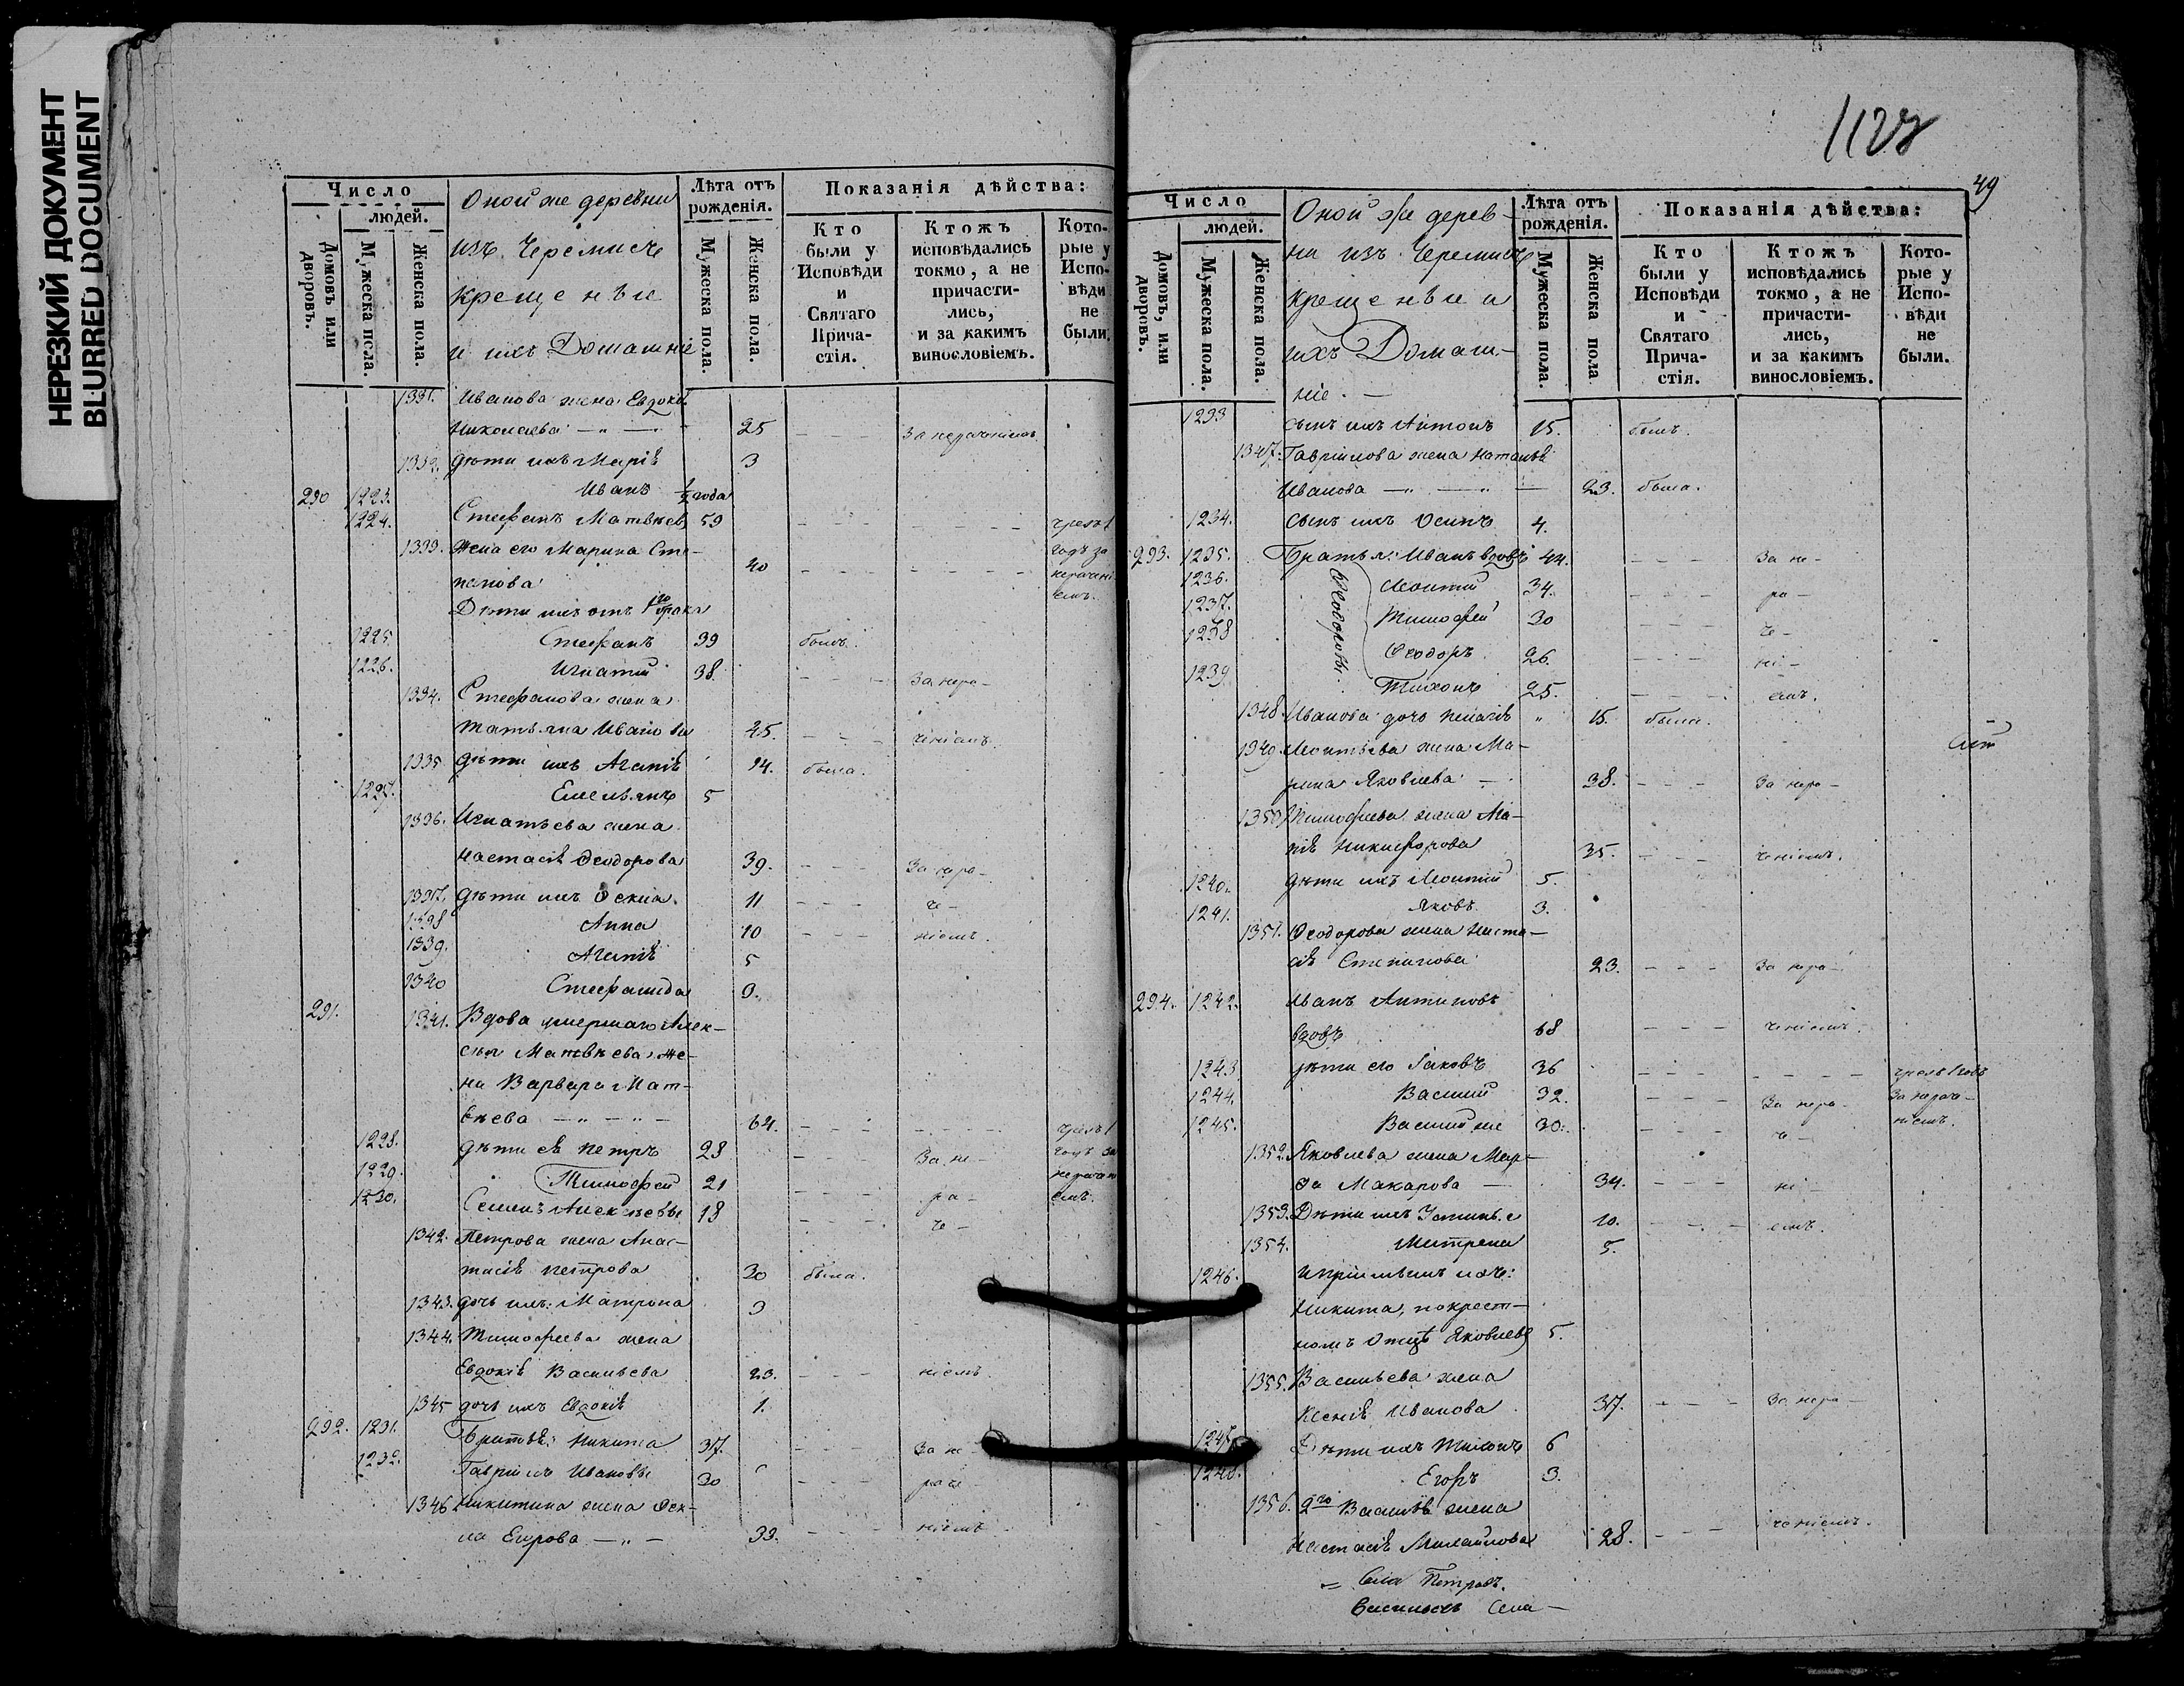 НЕРЕЗКИЙ ДОКУМЕНТ
BLURRED DOCUMENT
Число
людей.
Домовъ или дворовъ.
Мужеска пола.
Женска пола.
Оной же деревни
изъ Черемисъ
крещеные
и ихъ Домашніе
Лѣта отъ рожденія.
Мужеска пола.
Женска пола.
Показанія дѣйства:
Кто были у Исповѣди и Святаго Прича-стія.
Ктожъ исповѣдались токмо, а не причасти-лись, и за какимъ винословіемъ.
Кото-рые у Испо-вѣди не были.
1331. Иванова жена Евдокія
Николаева 25 За нераченіемъ
1332. дѣти ихъ Марія 3
1223. Иванъ ½ года
290 1224. Стефанъ Матвѣев 59 чрезъ 1
1333. Жена его Марина Сте- годъ за
панова 40 нерачені
емъ.
Дѣти ихъ отъ 1го брака
1225. Стефанъ 39 былъ.
1226. Игнатій 38. За нера-
1334. Стефанова жена
Татьяна Иванова 45. ченіемъ.
1335 дѣти ихъ Агапія 14. была.
1227. Емельянъ 5
1336. Игнатьева жена
Настасія Ѳеодорова 39. За нера-
1337. дѣти ихъ Ѳекла 11 че-
1338 Анна 10 ніемъ.
1339. Агапія 5
1340 Стефанида 9.
291. 1341. Вдова умершаго Алек-
сѣя Матвѣева же-
на Варвара Мат-
вѣева 64. чрезъ 1
1228. дѣти ея Петръ 28 За не- годъ за
1229. Тимофей 21 ра- нерачені
1230. Семенъ Алексѣевы 18 че- емъ.
1342. Петрова жена Анас-
тасія Петрова 30 была.
1343. дочь ихъ Матрона 9
1344. Тимофеева жена
Евдокія Васильева 23. ніемъ.
1345 дочь ихъ Евдокія 1.
292. 1231. Братья: Никита 37. За не-
1232. Гавріилъ Ивановы 30 раче
1346 Никитина жена Ѳек-
ла Егорова 33. ніемъ
1127
49
Число
людей.
Домовъ, или дворовъ.
Мужеска пола.
Женска пола.
Оной же дерев-
ни изъ Черемисъ
крещеные и
ихъ Домаш-
ніе.
Лѣта отъ рожденія.
Мужеска пола.
Женска пола
Показанія дѣйства:
Кто были у Исповѣди и Святаго Прича-стія.
Ктожъ исповѣдались токмо, а не причасти-лись, и за какимъ винословіемъ.
Кото-рые у Испо-вѣди не были.
1233 сынъ ихъ Антонъ 15. былъ.
1347. Гавріилова жена Наталья
Иванова 23. была.
1234. сынъ ихъ Осипъ 4.
293. 1235. Братья: Иванъ вдовъ 44. За не-
1236. Леонтій 34. ра-
1237. Тимофей 30 че-
1238 Ѳеодоръ 26. ні-
1239 Тихонъ 25. емъ.
Ѳеодоровы
1348. Иванова дочь Пелагія 15. была.
1349. Леонтьева жена Ма-
рина Яковлева 38. За нера-
1350 Тимофеева жена Ма-
рія Никифорова 35. ченіемъ.
1240. дѣти ихъ Леонтій 5.
1241. Яковъ 3.
1351. Ѳеодорова жена Наста-
сія Степанова 23. За нера-
294. 1242. Иванъ Антиповъ
вдовъ 68 ченіемъ.
1243. дѣти его Іаковъ 36 чрезъ 1 годъ
1244. Василій 32. За нера- за нераче-
1245. Василій же 30. че- ніемъ.
1352. Яковлева жена Мар-
ѳа Макарова 34. ні-
1353. Дѣти ихъ Устинья 10. емъ.
1354. Матрена 5.
1246.
Никита, по крест-
номъ Отцѣ Яковлевъ 5.
1355. Васильева жена
Ксенія Иванова 37. За нера-
1247. Дѣти ихъ Тихонъ 6
1248. Егоръ 3.
1356. 2го Василія жена
Настасія Михайлова 28. ченіемъ.
Села Петров.